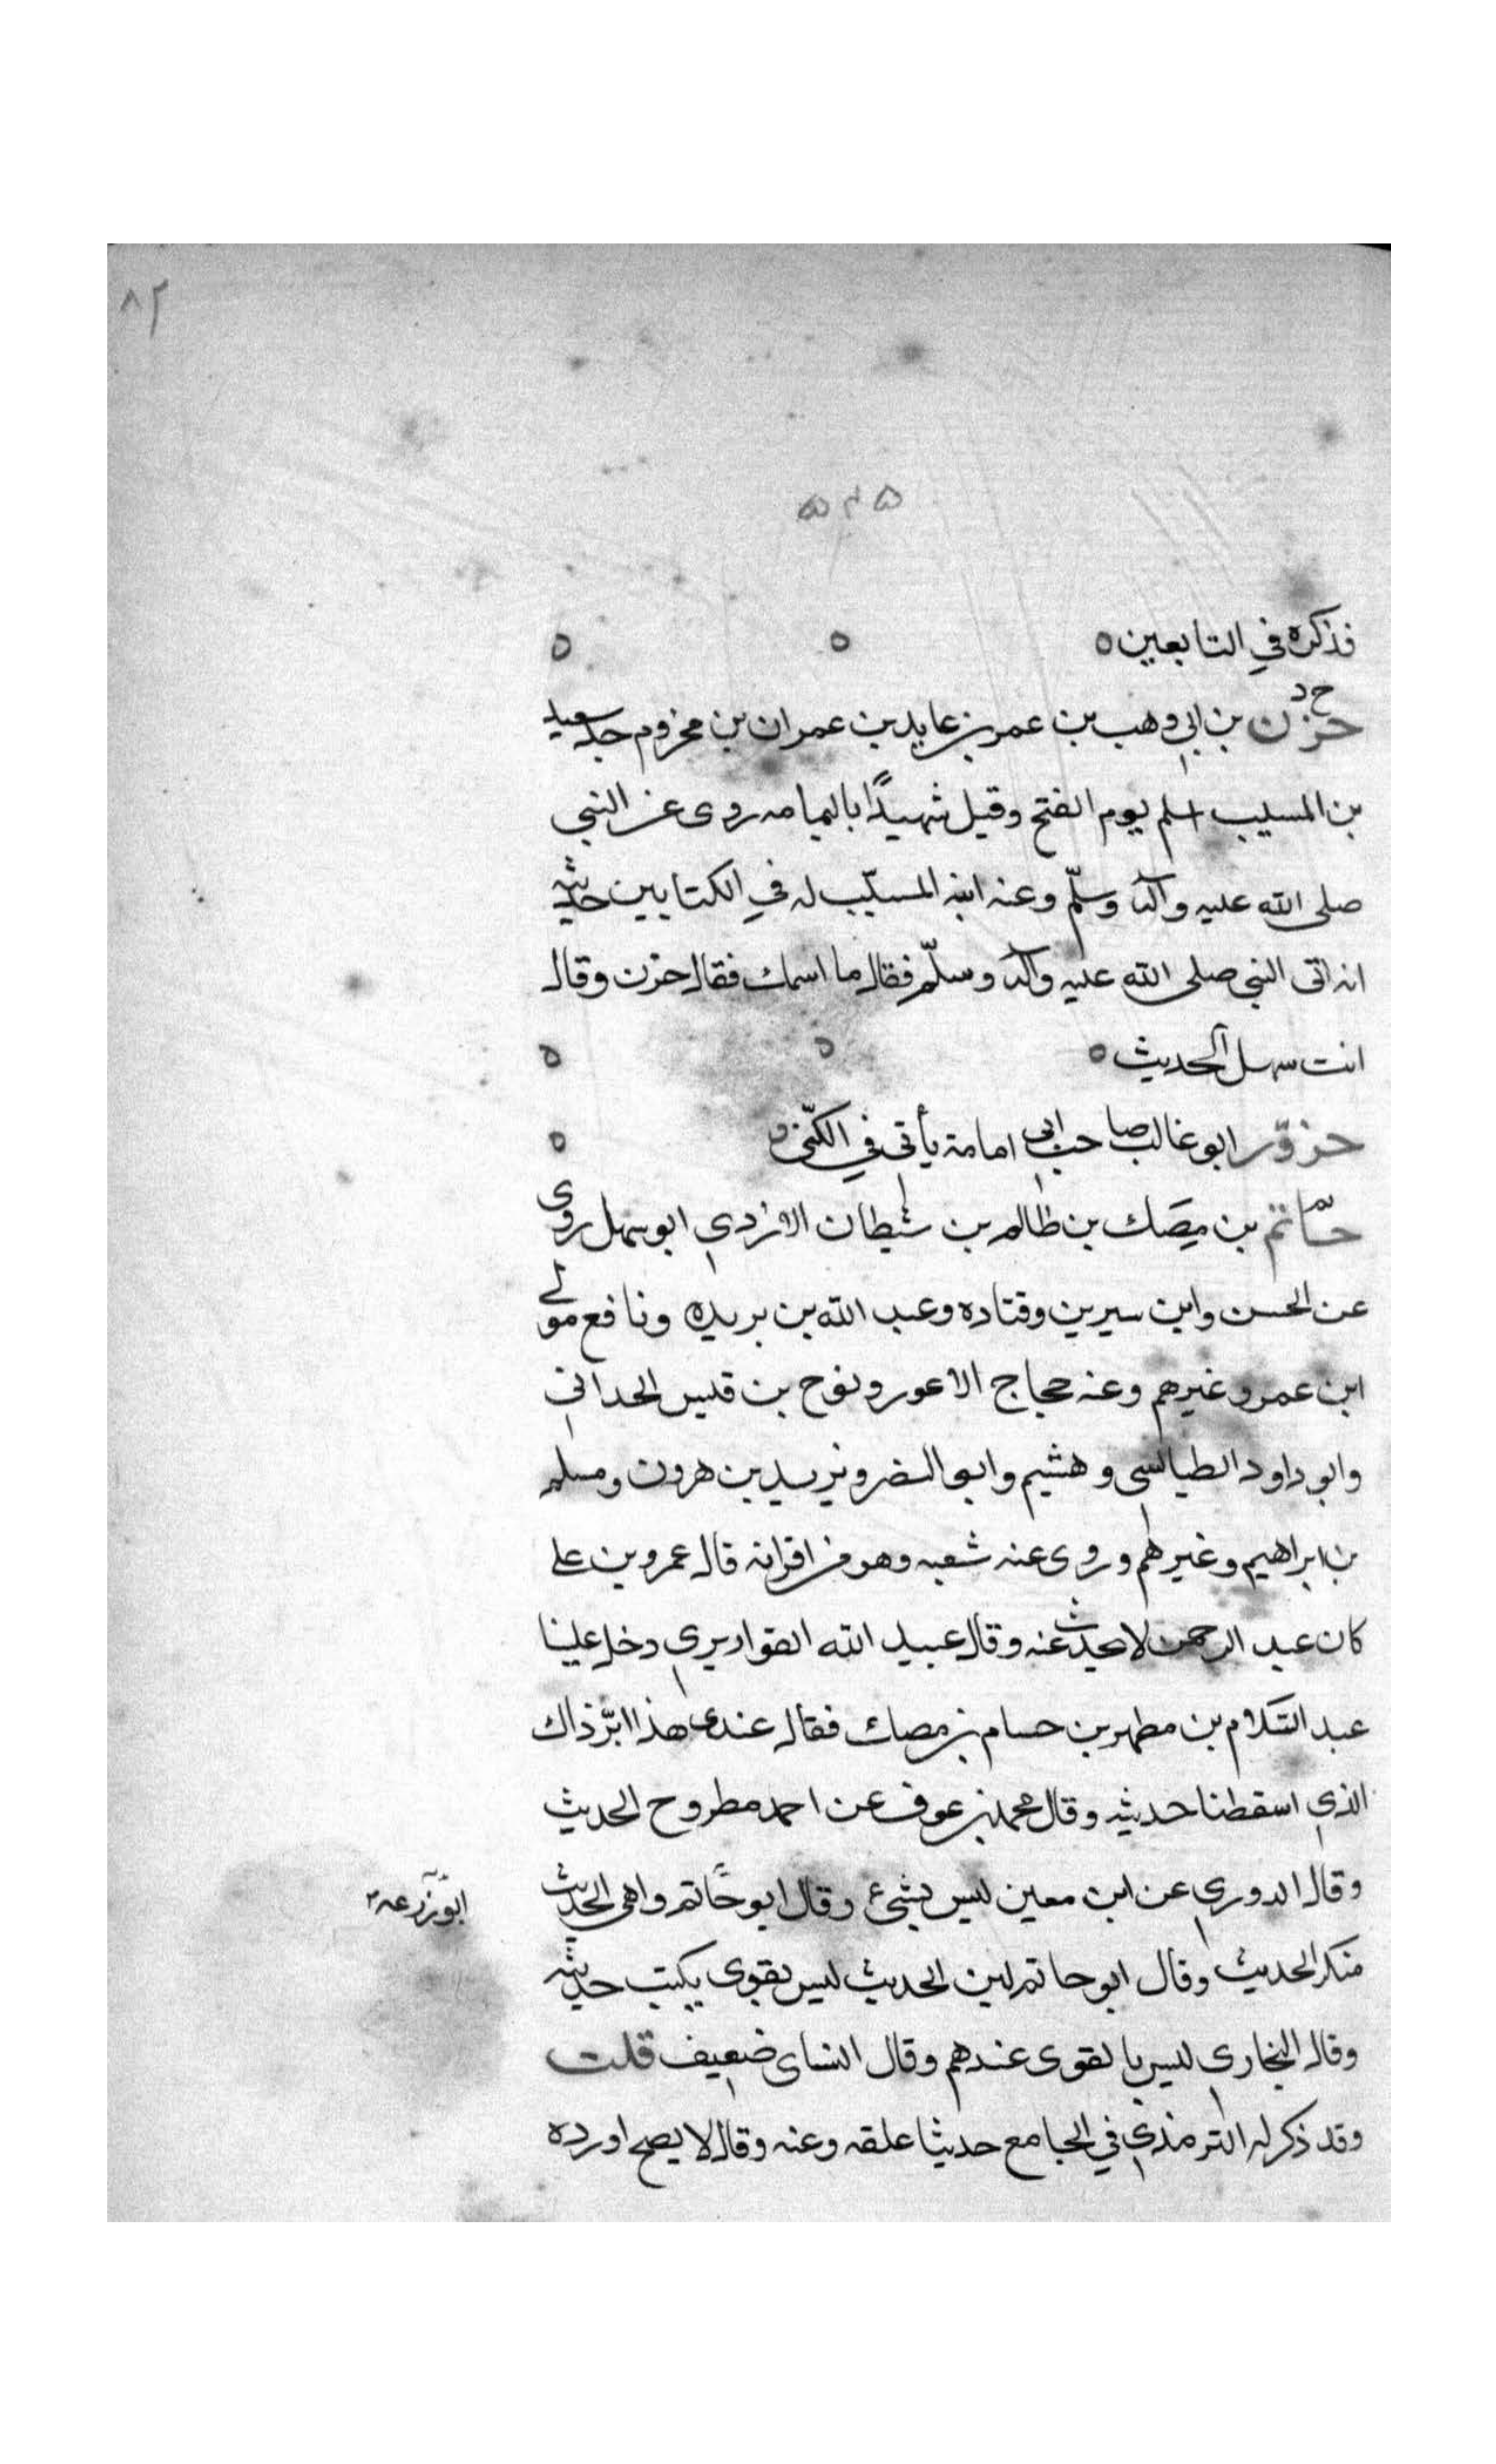 ٨٢
٥٢٥
فذكره في التابعين ٥ ٥ ٥
خ د
حزن بن ابي وهب بن عمر بن عايد بن عمران بن مخزوم جد سعيد
بن المسيب اسلم يوم الفتح وقيل شهيدًا باليمامه روى عن النبي
صلى الله عليه وآله وسلّم وعنه ابنه المسيّب له في الكتابين حديثه
انه اتى النبي صلى الله عليه وآله وسلّم فقال ما اسمك فقال حزن وقال
انت سهل الحديث ٥ ٥ ٥
حزوّر ابو غالب صاحب ابي امامة يأتي في الكنّى ٥ ٥
بن مِصَك بن ظالم بن شيطان الازدي ابو سهل روى
عن الحسن وابن سيرين وقتاده وعبد الله بن بريده ونافع مولى
ابن عمر وغيرهم وعنه حجاج الاعور ونوح بن قيس الحداني
وابو داود الطيالسي وهشيم وابو النضر ويزيد بن هرون ومسلم
بن ابراهيم وغيرهم وروى عنه شعبه وهو من اقرانه قال عمرو بن علي
كان عبد الرحمن لا يحدث عنه وقال عبيد الله القواريري دخل علينا
عبد السّلام بن مطهر بن حسام بن مصك فقال عندى هذا ابن ذاك
الذي اسقطنا حديثه وقال محمد بن عوف عن احمد مطروح الحديث
وقال الدوري عن ابن معين ليس بشيء وقال ابو حاتم واهي الحديث
ابو زرعه
منكر الحديث وقال ابو حاتم لين الحديث ليس بقوى يكتب حديثه
وقال البخاري ليس بالقوى عندهم وقال النساى ضعيف قلت
وقد ذكر له الترمذي في الجامع حديثا علقه وعنه وقال لا يصح اورده